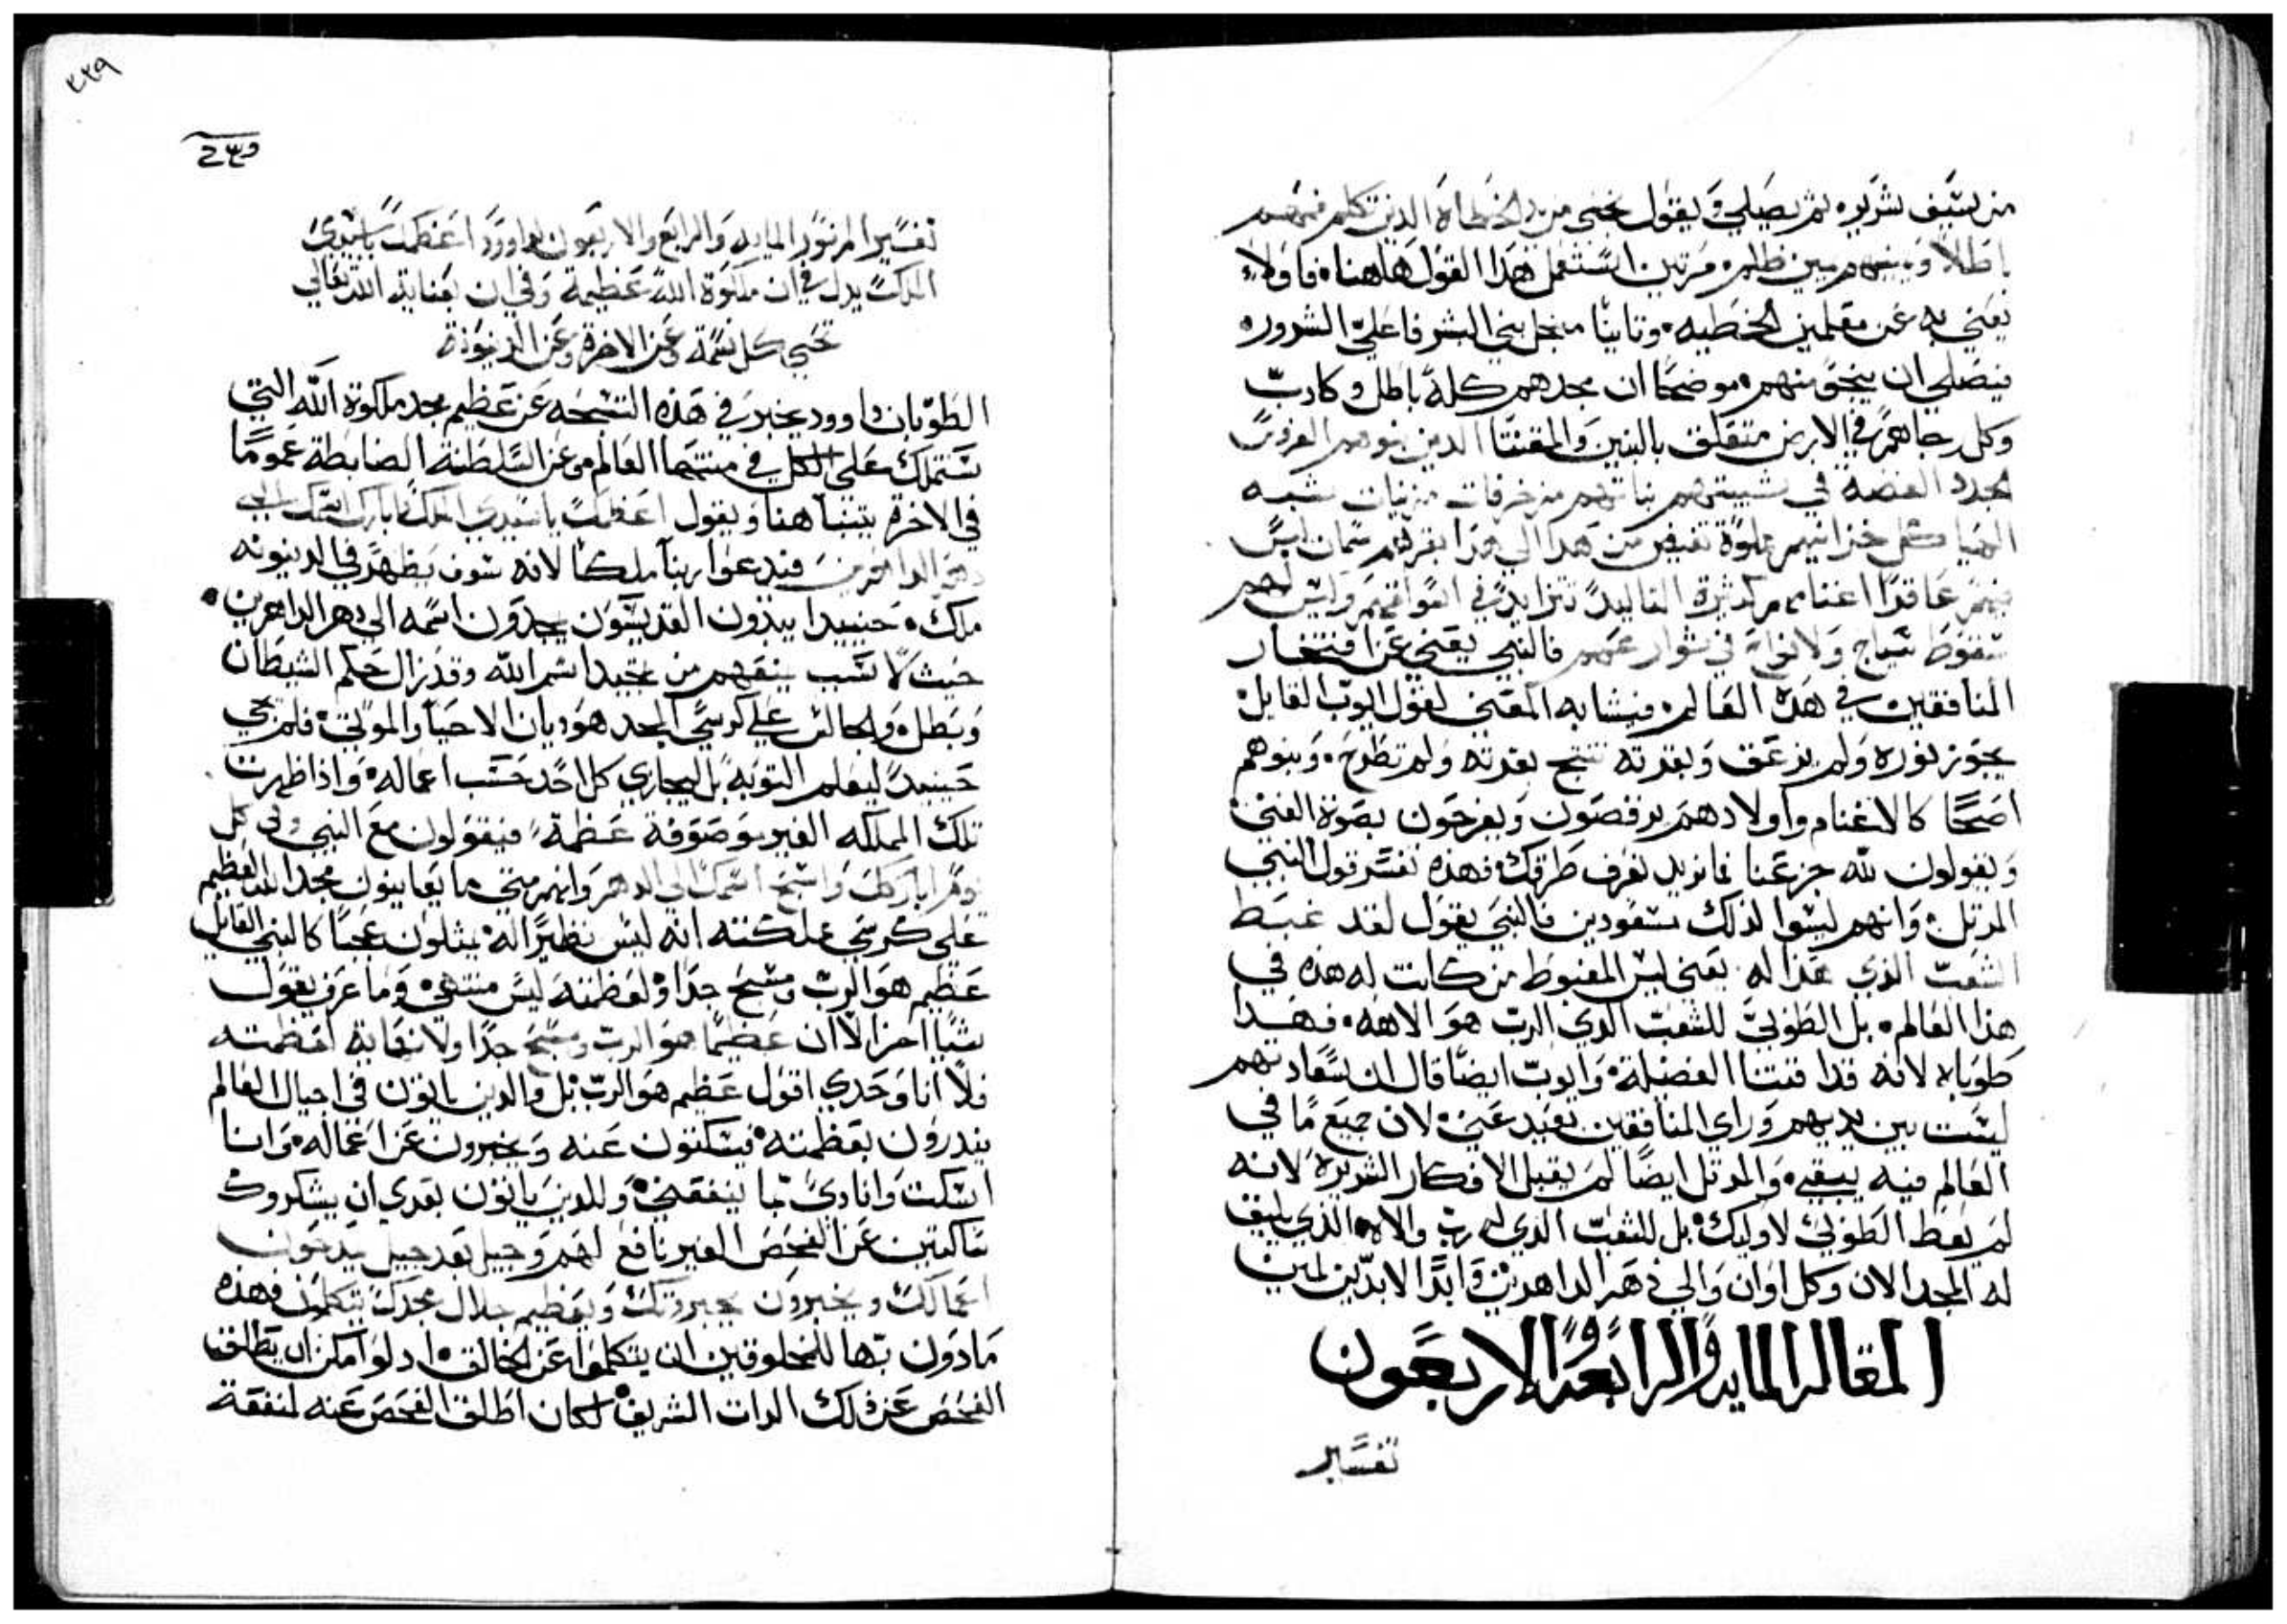 من سيف شريره ثم يصلي ويقول نجني من يد الخطاه الذين تكلم فمهم
باطلاً ويمينهم يمين ظلم مرتين استعمل هذا القول هاهنا فاولاً
يعني به عن معلمين الخطيه وثانياً منجل بني البشر فاعلي الشرور
فيصلي ان ينجو منهم موضحاً ان مجدهم كله باطل وكادب
وكل رجاهم في الارض متعلق بالبنين والمقتنا الدين بنوهم الغروس
الجدد الغضه في شبيبتهم بناتهم مزخرفات مزينات شبه
الهيا كل خزاينهم مملوة تفيض من هدا الي هدا بقرهم سمان ليس
فيهم عاقراً اغنامهم كثيرة التاليد تتزايد في اسواقهم وليس لهم
سقوط سياج ولا نواح في شوارعهم فالنبي يعني عن افتخار
المنافقين في هده العالم فيشابه المعني لقول ايوب القايل
يجوز ثوره ولم يزعق وبقرته تنتج بقرته ولم تطرح وبنوهم
اصحا كالاغنام واولادهم يرقصون ويفرحون بصوة الغني
ويقولون لله جز عنا فما نريد نعرف طرقك فهده تفسر قول النبي
المرتل وانهم ليسوا لدلك مسعودين فالنبي يقول لقد غبط
الشعب الذي هذا له يعني ليس المغبوط من كانت له هذه في
هذا العالم بل الطوبي للشعب الدي الرب هو الاهه فهدا
طوباه لانه قد اقتنا الفضيلة وايوب ايضاً قال ان سعادتهم
ليست بين يديهم وراي المنافقين بعيد عني لان جميع ما في
العالم فيه يبقي والمرتل ايضاً لم يقبل الافكار الشريرة لانه
لم يعط الطوبي لاوليك بل للشعب الذي له رب والاه الذي يليق
له المجد الان وكل اوان والي دهر الداهرين وابداً الابدين امين
المقاله المايه والرابعه والاربعون
تفسير
٢٣٩
تفسير المزمور المايه والرابع والاربعون لداوود اعظمك يا سيدي
الملك يدل في ان ملكوة الله عظيمة وفي ان بعناية الله تعالي
تحيي كل نسمة وعن الاخرة وعن الدينونة
الطوبان داوود يخبر في هذه التسبحه عن عظيم مجد ملكوة الله التي
ستملك علي الكل في منتها العالم وعن السلطنه الضابطة عموماً
في الاخرة يتنبا هنا ويقول اعظمك يا سيدي الملك ابارك اسمك الي
دهر الداهرين فيدعوا ربنا ملكاً لانه سوف يظهر في الدينونه
ملك حينيد يبدون القديسون يمجدون اسمه الي دهر الداهرين
حيث لا سبب يمنعهم من تمجيد اسم الله وقد زال حكم الشيطان
وبطل والجالس علي كرسي المجد هو ديان الاحيا والموتي فلم يجي
حينيد ليعلم التوبه بل ليجازي كل احد حسب اعماله واذا ظهرت
تلك المملكه الغير موصوفة عظمة فيقولون مع النبي وفي كل
يوم اباركك واسبح اسمك الي الدهر وانهم متي ما يعاينون مجد الله العظيم
علي كرسي مملكته انه ليس نظيراً له يمثلون عجباً كالنبي القايل
عظيم هو الرب ومسبح جداً ولعظمته ليس منتهي وما عرف يقول
شياً اخر الا ان عظيماً هو الرب ومسبح جداً ولا نهاية لعظمته
فلا انا وحدي اقول عظيم هو الرب بل والدين ياتون في اجيال العالم
ينذرون بعظمته فيسكتون عنه ويخبرون عن اعماله وانا
اسكت وانادي بما ينفعني وللدين ياتون بعدي ان يشكروك
ساكتين عن الفحص الغير نافع لهم وجيل بعد جيل يمدحون
اعمالك ويخبرون بجبروتك وبعظيم جلال مجدك يتكلمون فهذه
مادون بها للمخلوقين ان يتكلموا عن الخالق اد لو امكن ان يطلق
الفحص عن دلك الدات الشريف لكان اطلق الفحص عنه لمنفعة